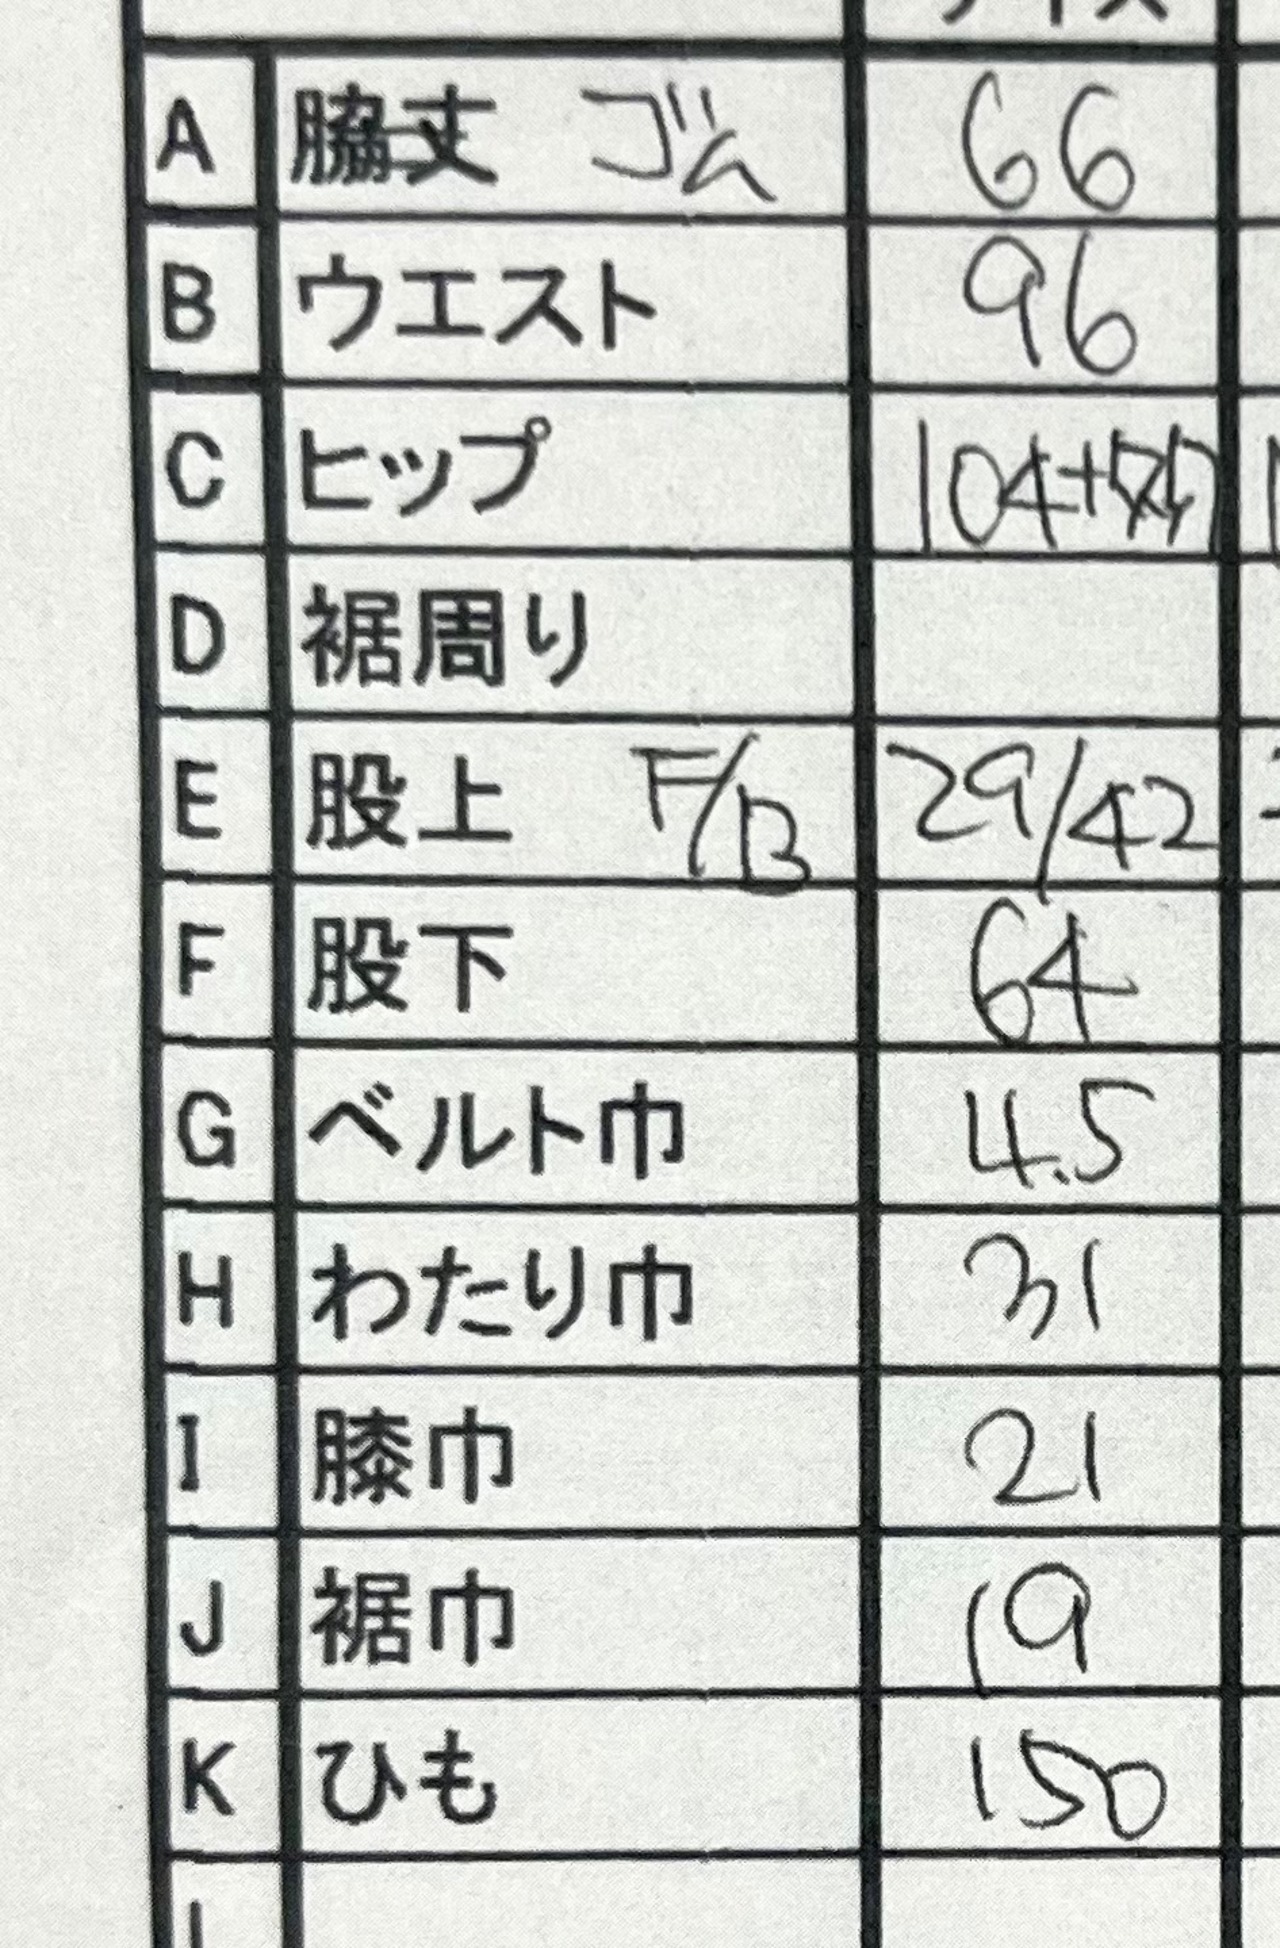 サイズ
A 脇丈 ゴム 66
B ウエスト 96
C ヒップ 104+
D 裾周り
E 股上 F/B 29/42
F 股下 64
G ベルト巾 4.5
H わたり巾 31
I 膝巾 21
J 裾巾 19
K ひも 150